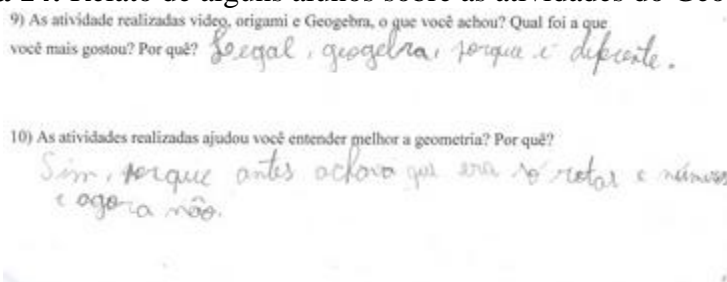 9) As atividade realizadas video, origami e Geogebra, o que você achou? Qual foi a que
você mais gostou? Por quê? Legal, geogebra, porque é diferente.
10) As atividades realizadas ajudou você entender melhor a geometria? Por quê?
Sim, porque antes achava que era só retas e números
e agora não.